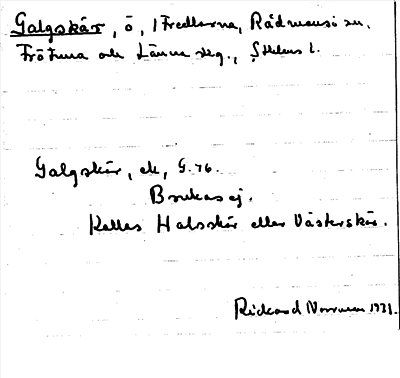 Galgskär, ö, i Fredlarna, Rådmansö sn.
Frötuna och Länna skg., Sthlms l.
Galgskär, ek, G. 76.
Brukas ej.
Kallas Halsskär eller Västerskär.
Rickard 1931.